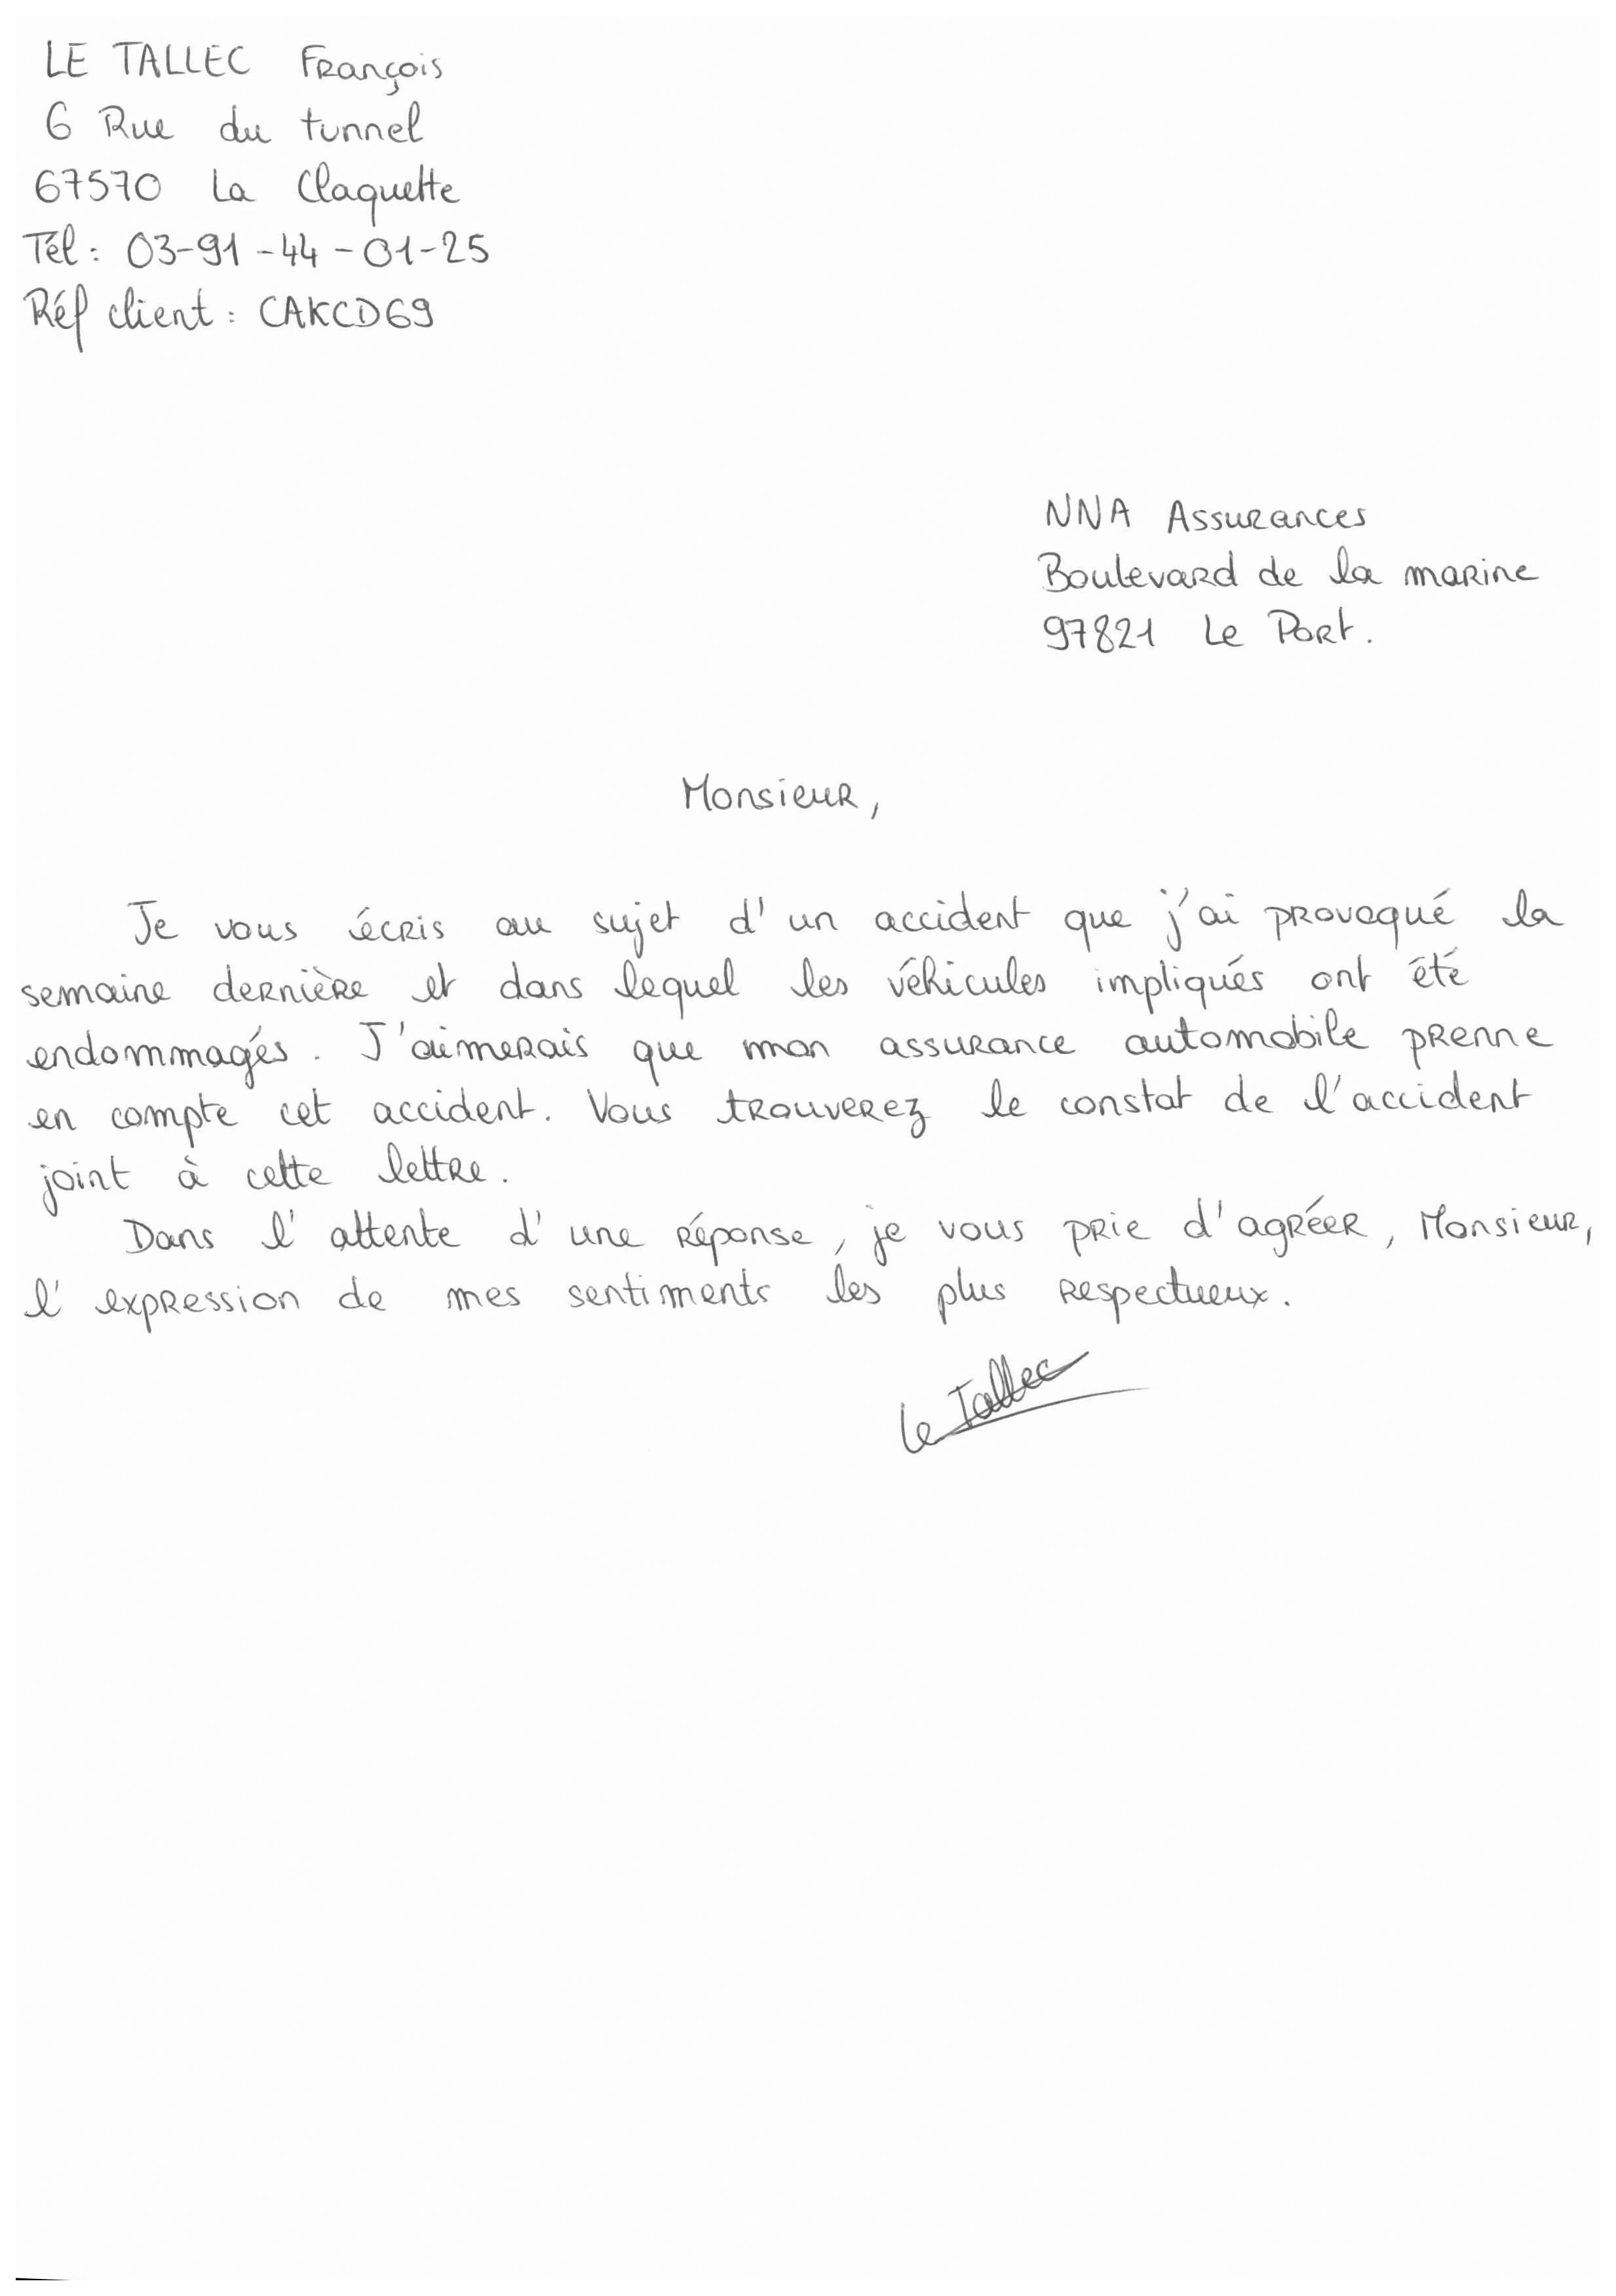 LE TALLEC François
6 Rue du tunnel
67570 La Claquette
Tél : 03-91-44-01-25
Réf client : CAKCD69
NNA Assurances
Boulevard de la marine
97821 Le Port.
Monsieur,
Je vous écris au sujet d'un accident que j'ai provoqué la
semaine dernière et dans lequel les véhicules impliqués ont été
endommagés. J'aimerais que mon assurance automobile prenne
en compte cet accident. Vous trouverez le constat de l'accident
joint à cette lettre.
Dans l'attente d'une réponse, je vous prie d'agréer, Monsieur,
l'expression de mes sentiments les plus respectueux.
Le Tallec